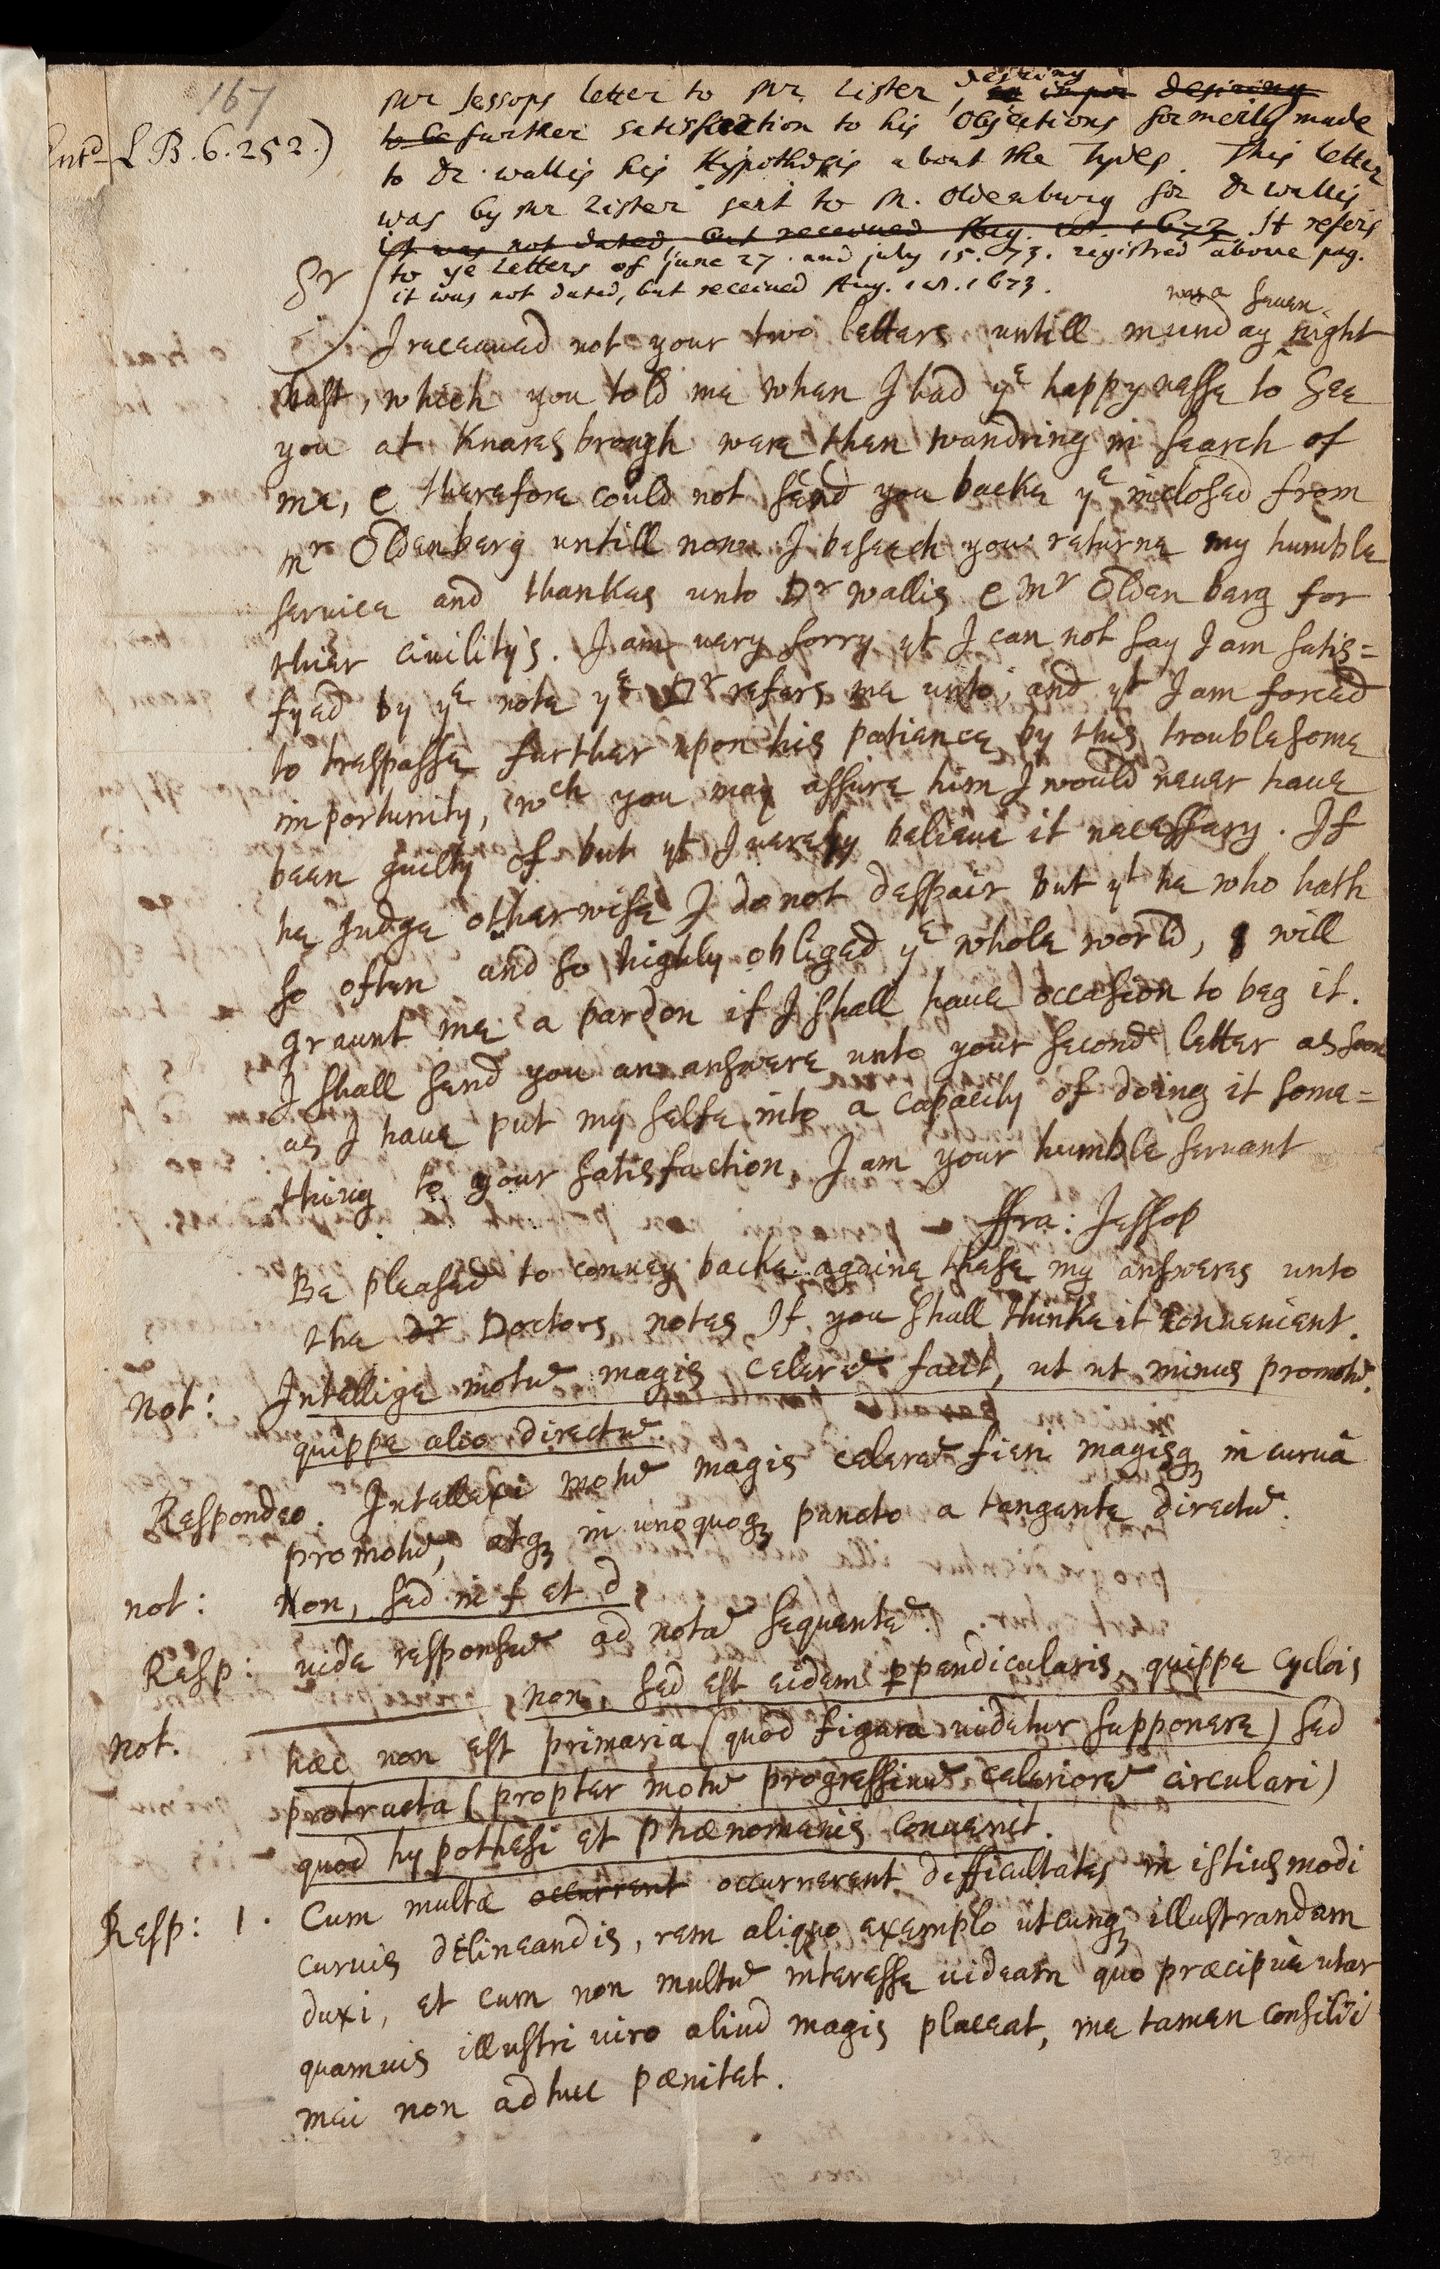 167
Ent.d L B. 6. 252.)
Mr Jessops letter to Mr. Lister, desiring
to be further satisfaction to his Objections formerly made
to Dr. Wallis his Hypothesis about the Tydes. This letter
was by Mr Lister sent to M. Oldenburg for Dr Wallis
it was not dated, but received Aug. 1673 It refers
to ye letters of june 27. and july 15. 73. registred above pag.
it was not dated, but received Aug. 1673.
Sr
was a seven-
I receaued not your two letters untill munday night
last, which you told me when I had ye happynesse to see
you at Knaresbrough were then wandring in search of
me, & therefore could not send you backe ye inclosed from
Mr Oldenberg untill now. I beseech you returne my humble
service and thankes unto Dr Wallis & Mr Oldenberg for
thier civility's. I am very sorry yt I can not say I am satis=
fyed by ye note ye Dr refers me unto, and yt I am forced
to trespasse further upon his patience by this troublesome
importunity, wch you may assure him I would never have
been guilty of but yt I verely believe it necessary. If
he judge otherwise I do not despair but yt he who hath
so often and so highly obliged ye whole world, will
graunt me a pardon if I shall have occasion to beg it.
I shall send you an answere unto your second letter as soon
as I have put my selfe into a capacity of doing it some=
thing to your satisfaction, I am your humble servant
ffra: Jessop
Be pleased to convey backe againe these my answeres unto
the dr Doctors notes If you shall thinke it convenient.
Not: Intellige motū magis celerē facit, ut ut minus promotū.
quippe alio directū.
Respondeo. Intellexi motū magis celerē fieri magisq in curvâ
promotū, atq in unoquoq puncto a tangente directū.
not: Non, sed in f et d
Resp: vide responsū ad notā sequentē.
Not. non, sed est eidem perpendicularis, quippe cyclois
hæc non est primaria (quod figura videtur supponere) sed
protracta (propter motū progressivū celeriorē circulari)
quod hypothesi et phænomenis convenit.
Resp: 1. Cum multæ occurrent occurrerent difficultates in istiusmodi
curvis delineandis, rem aliquo exemplo utcunq illustrandam
duxi, et cum non multū interesse videam quo præcipuè utar
quamvis illustri viro aliud magis placeat, me tamen consilii
mei non adhuc pænitet.